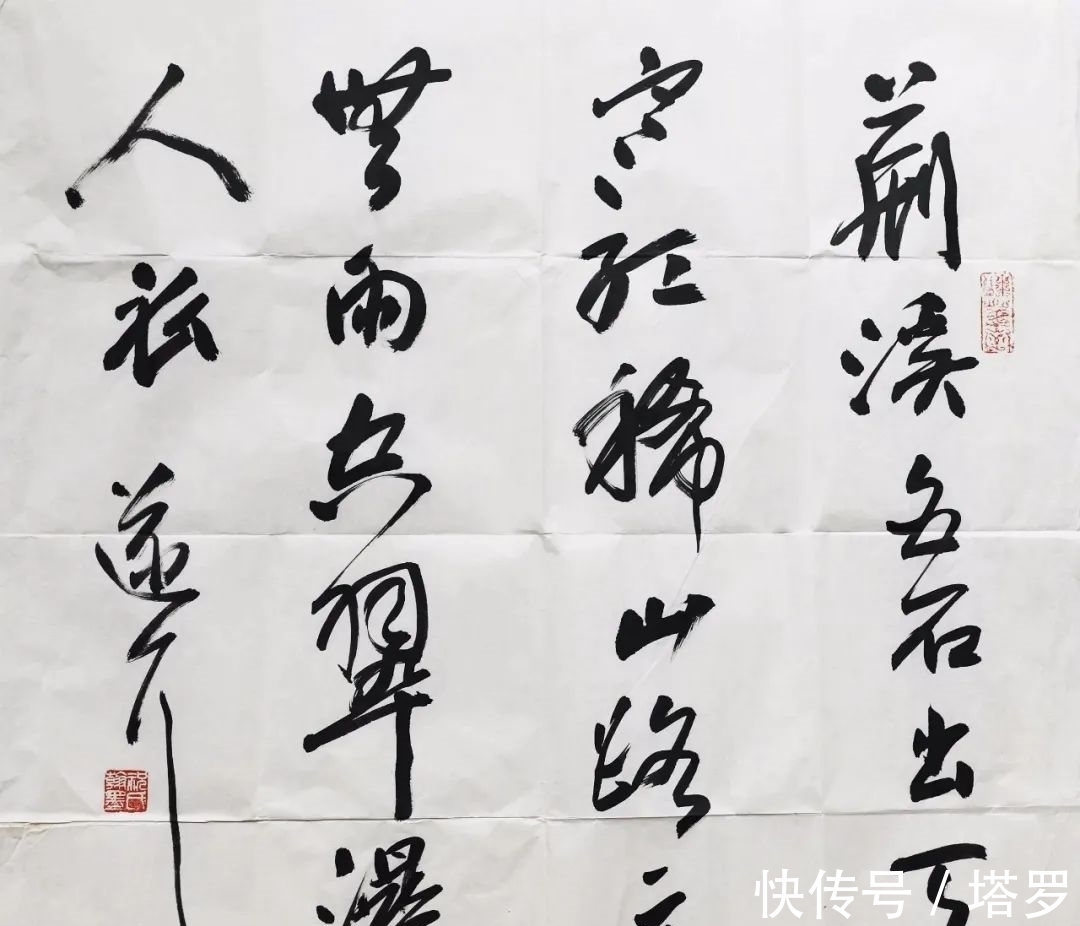 荆溪白石出天
寒红稀山路元
無雨空翠濕
人衣
快传号 / 塔罗